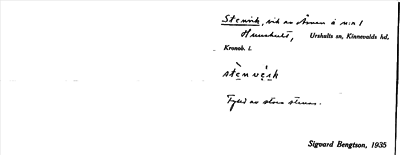 Stenvik, vik av Åsnen å n:o 1
Hunshult, Urshults sn, Kinnevalds hd,
Kronob. l.
stèn vẹ́ik
Fylld av stora stenar.
Sigvard Bengtson, 1935